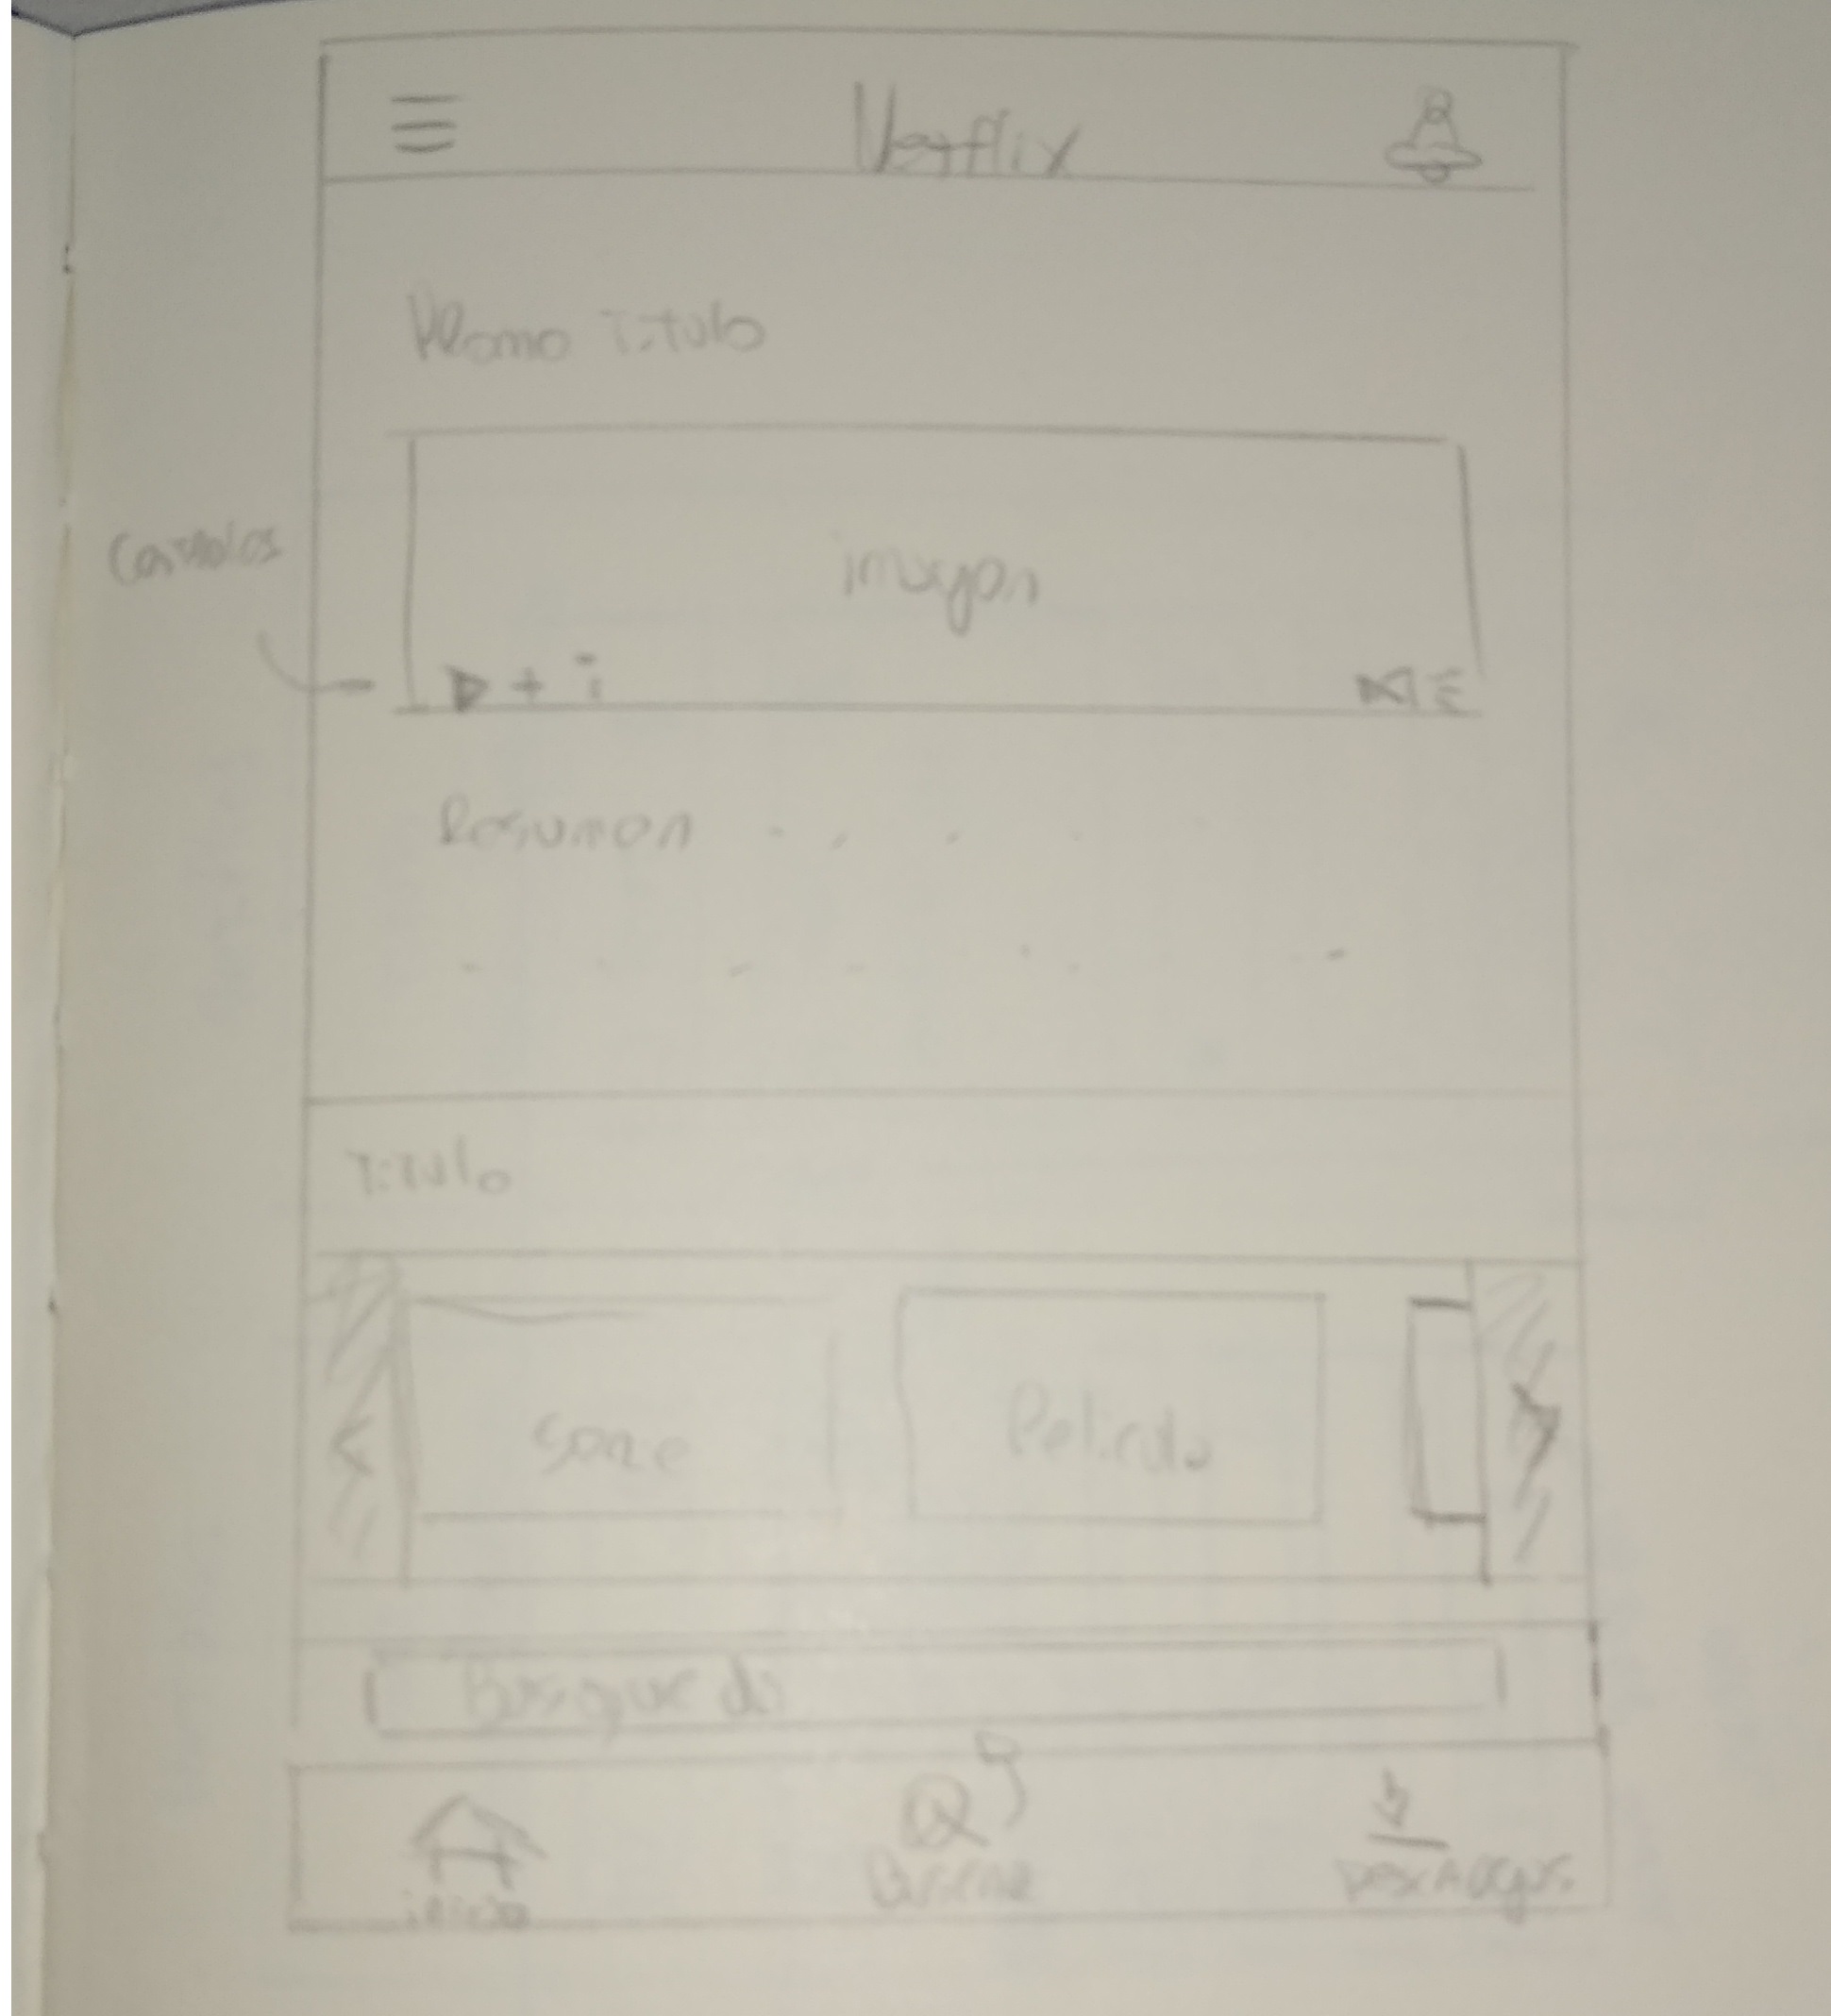 Netflix
Promo Titulo
Controles
imagen
+ i
Resumen
Titulo
Serie
Pelicula
Busqueda
inicio
Buscar
Descargas